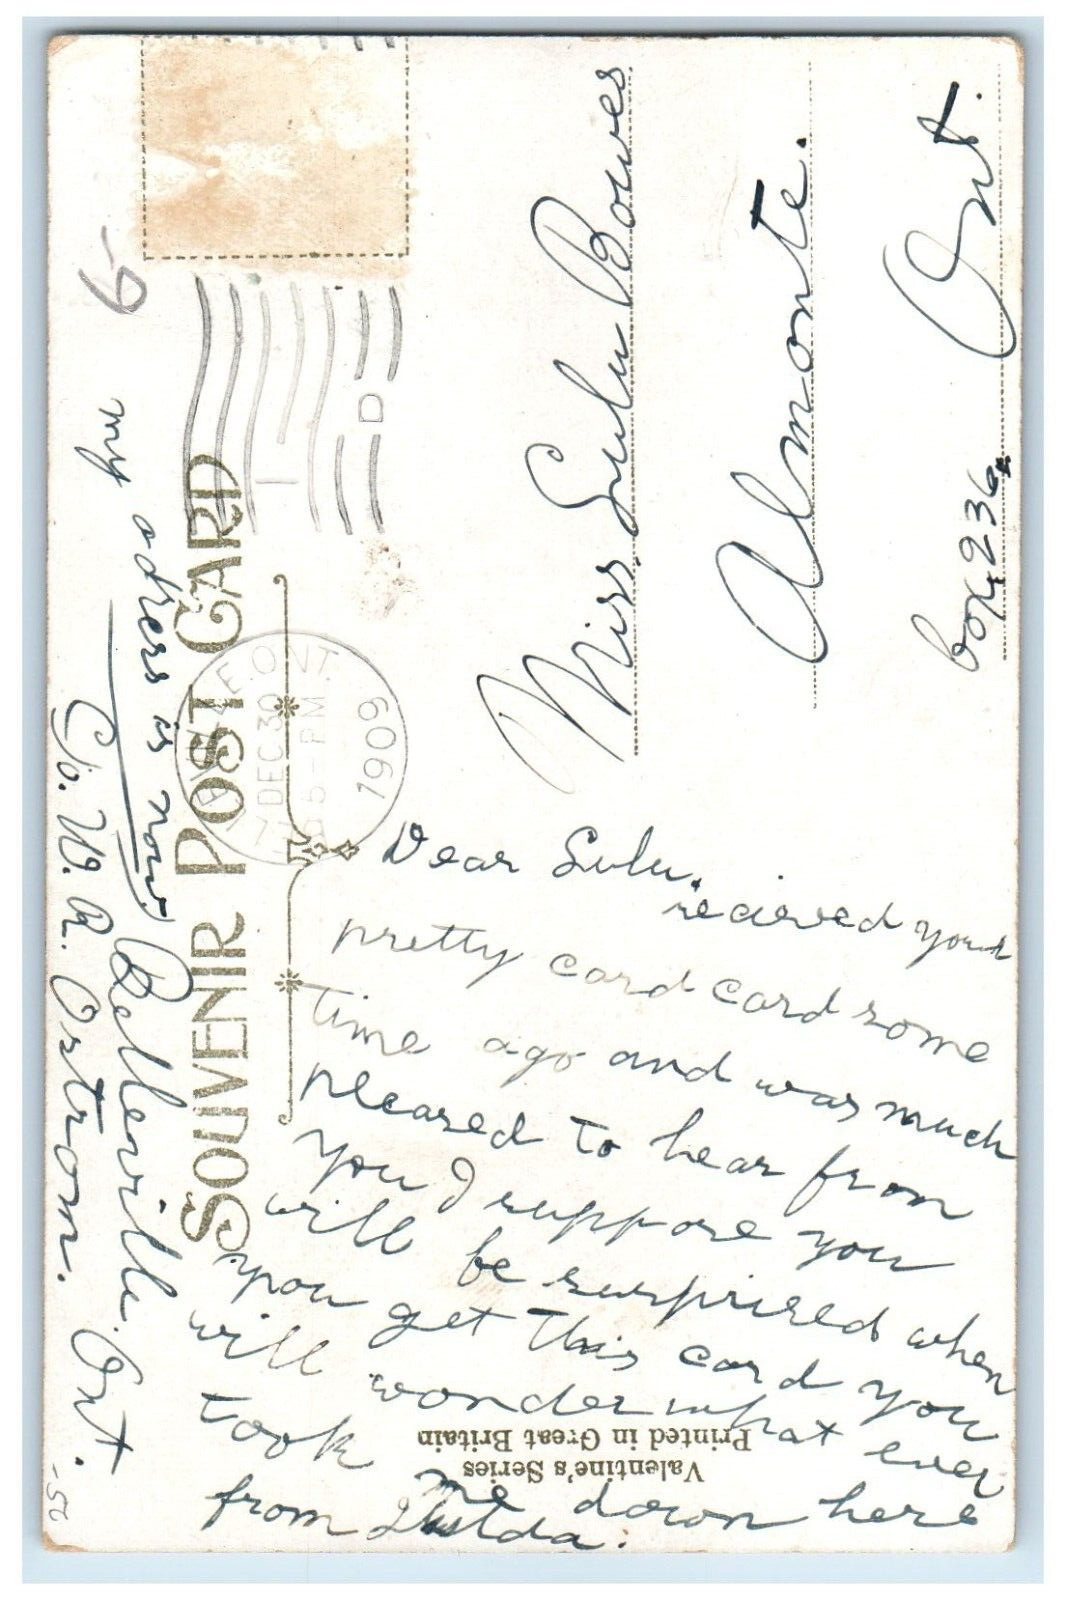 SOUVENIR POST CARD
DEC 30
5-PM
1909
ONT.
D
Miss Lulu Bowes
Almonte.
Ont.
box 236
Dear Lulu.
recieved your
pretty card card some
time ago and was much
pleased to hear from
you I suppose you
will be surprised when
you get this card you
will wonder what ever
took me down here
from
my adress is now Belleville. Ont.
C/o. W. R. Ostrom.
Valentine's Series
Printed in Great Britain
-9